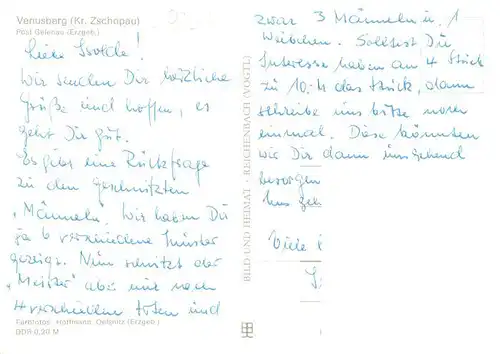 Venusberg (Kr. Zschopau)
Post Gelenau (Erzgeb.)
Liebe Isolde!
Wir senden Dir herzliche
Grüße und hoffen, es
geht Dir gut.
Es gibt eine Rückfrage
zu den geschnitzten
"Männeln". Wir haben Dir
ja 6 verschiedene Muster
gezeigt. Nun schnitzt der
"Meister" aber nur noch
4 verschiedene Arten und
Farbfotos: Hoffmann, Oelsnitz (Erzgeb.)
DDR 0,20 M
BILD UND HEIMAT · REICHENBACH (VOGTL)
zwar 3 Männeln u. 1
Weibchen. Solltest Du
Interesse haben an 4 Stück
zu 10.- M das Stück, dann
schreibe uns bitte noch
einmal. Diese könnten
wir Dir dann umgehend
besorgen
Uns geh
Viele